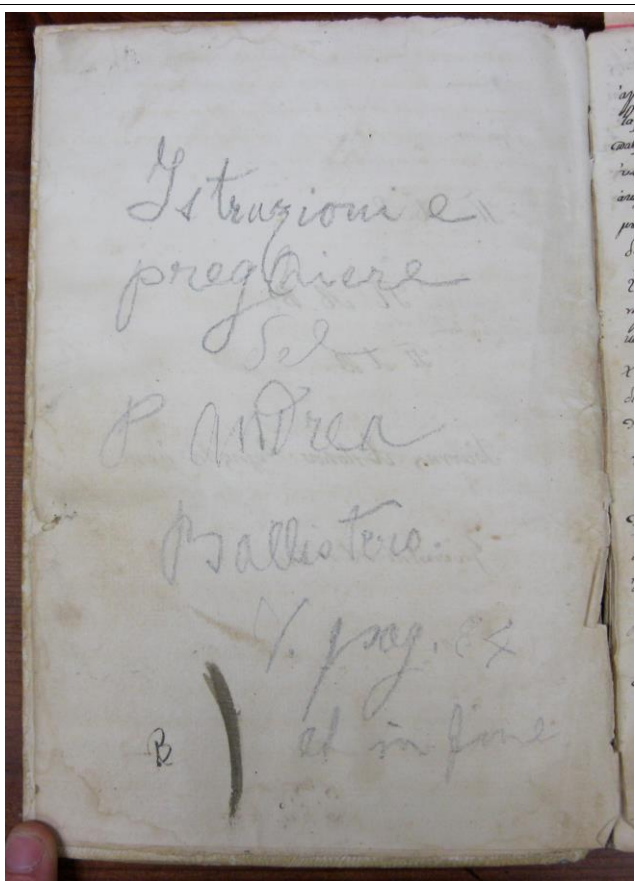 Istruzioni e
preghiere
del
P Andrea
Ballistero
V. pag.
et in fine
B